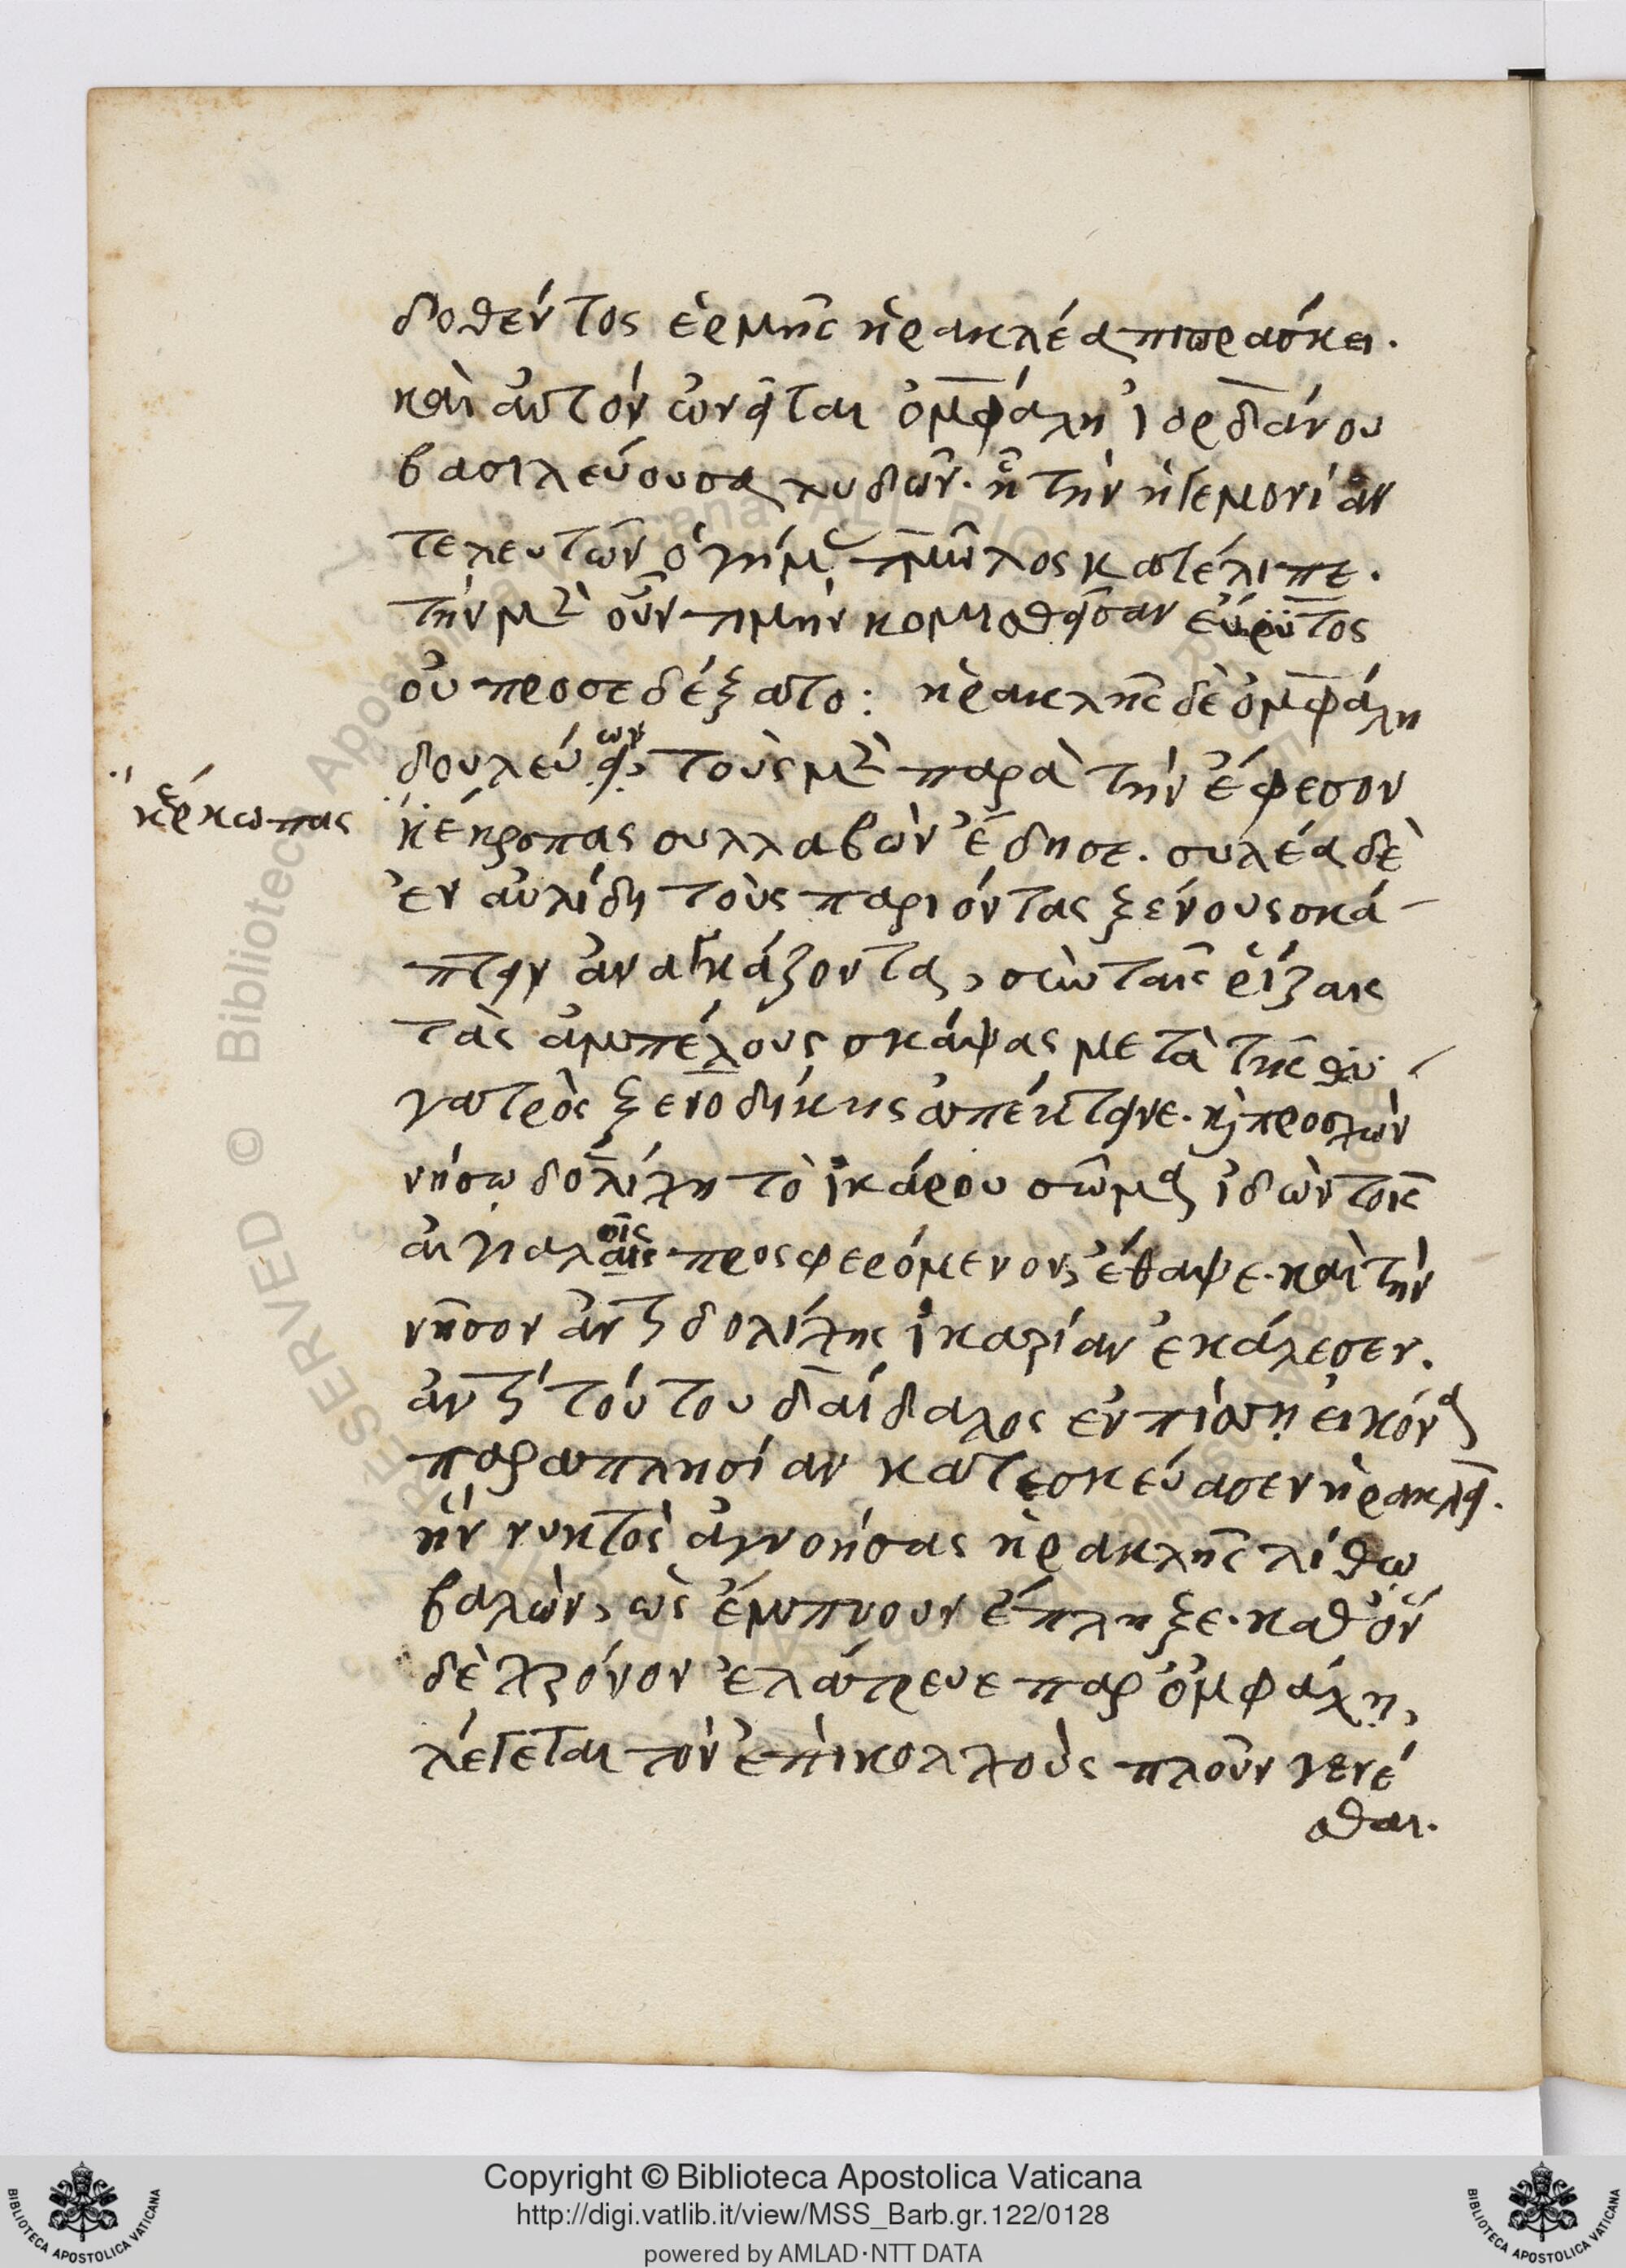 δοθέντος ἑρμῆς ἡρακλέα πιπράσκει.
καὶ αὐτὸν ὠνεῖται ὀμφάλη ἰορδάνου
βασιλεύουσα λυδῶν. ἧ τὴν ἡγεμονίαν
τελευτῶν ὁ γήμας τμῶλος κατέλιπε.
τὴν μὲν οὖν τιμὴν κομισθεῖσαν εὔρυτος
οὐ προσεδέξατο: ἡρακλῆς δὲ ὀμφάλη
ων
δουλεύει, τοὺς μὲν παρὰ τὴν ἔφεσον
κέρκωπας
κέκροπας συλλαβὼν ἔδησε. συλέα δὲ
ἐν αὐλίδι τοὺς παριόντας ξένους σκά-
πτειν ἀναγκάζοντα, σὺν ταῖς ῥίζαις
τὰς ἀμπέλους σκάψας μετὰ τῆς θυ-
γατρὸς ξενοδίκης ἀπέκτεινε. καὶ προσχὼν
νήσω δολίχη τὸ ἰκάρου σῶμα ἰδὼν τοῖς
οῖς
αἰγιαλαῖς προσφερόμενον, ἔθαψε. καὶ τὴν
νῆσον ἀντὶ δολίχης ἰκαρίαν ἐκάλεσεν.
ἀντὶ τούτου δαίδαλος ἐν πίση εἰκόνα
παραπλησίαν κατεσκεύασεν ἡρακλεῖ.
ἣν νυκτὸς ἀγνοήσας ἡρακλῆς λίθω
βαλὼν, ὡς ἔμπνουν ἔπληξε. καθ' ὃν
δὲ χρόνον ἐλάτρευε παρ' ὀμφάλη,
λέγεται τὸν ἐπὶ κολχοὺς πλοῦν γενέ
σθαι.
Copyright © Biblioteca Apostolica Vaticana
http://digi.vatlib.it/view/MSS_Barb.gr.122/0128
powered by AMLAD·NTT DATA